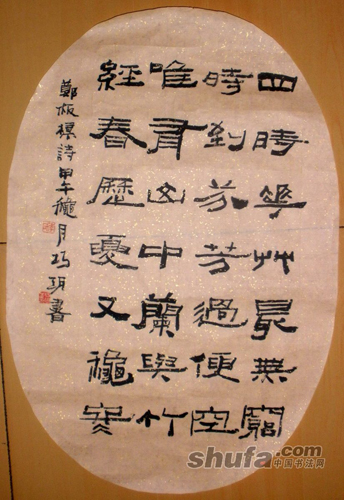 四時華艸最無窮
時到芬芳過便空
唯有山中蘭與竹
經春歷夏又龝冬
鄭板橋詩甲午龝月巧玥書
shufa.com
中国书法网